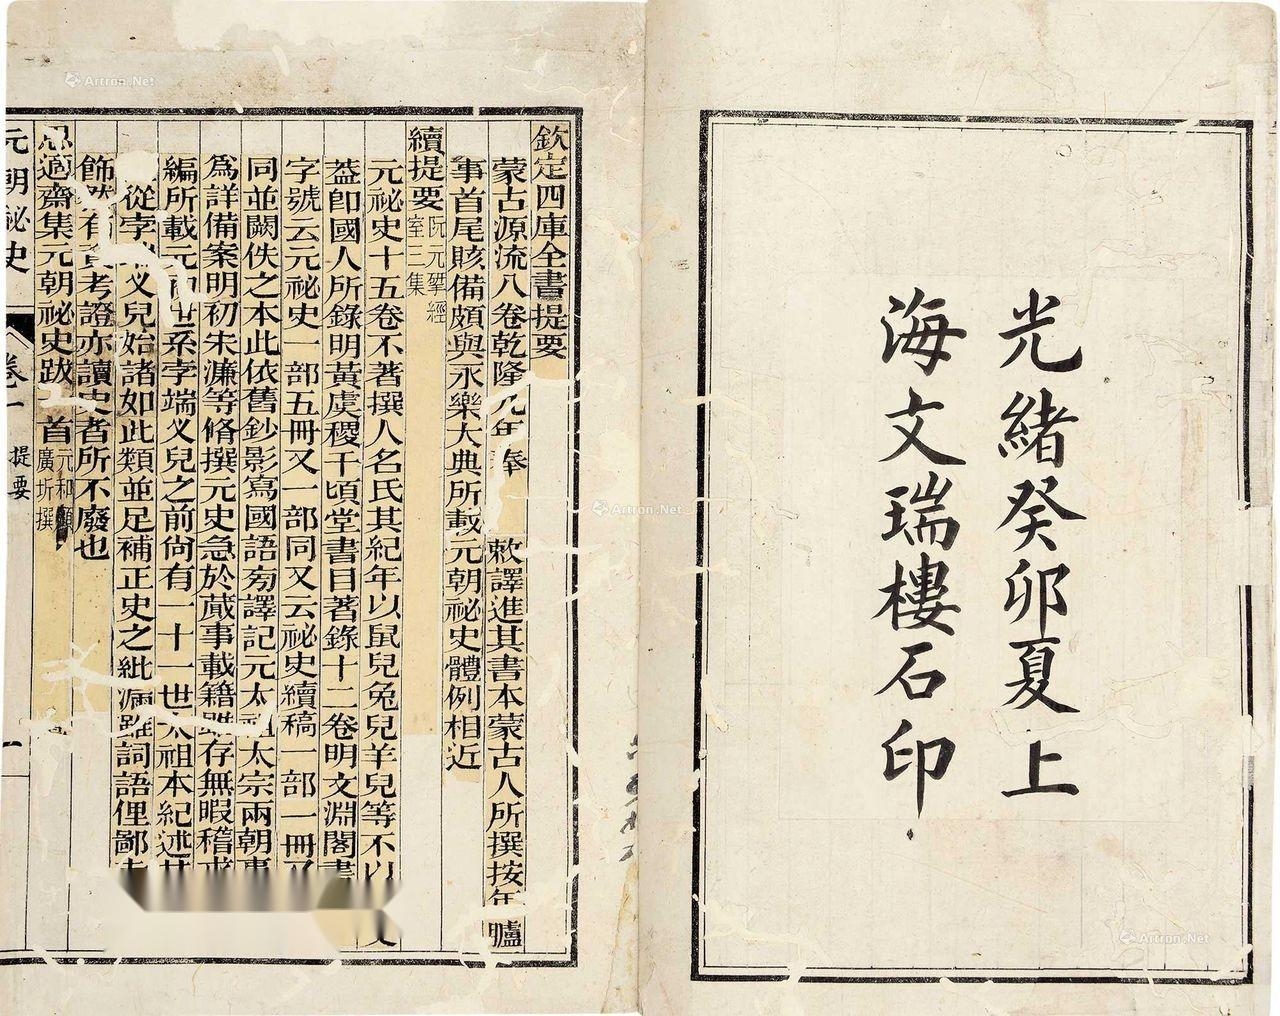 光緒癸卯夏上
海文瑞樓石印
欽定四庫全書提要
蒙古源流八卷乾隆九年奉
敕譯進其書本蒙古人所撰按年臚
事首尾賅備頗與永樂大典所載元朝祕史體例相近
續提要
阮元揅經
室三集
元祕史十五卷不著撰人名氏其紀年以鼠兒兔兒羊兒等不以
葢卽國人所錄明黃虞稷千頃堂書目著錄十二卷明文淵閣書
字號云元祕史一部五冊又一部同又云祕史續稿一部一冊
同並闕佚之本此依舊鈔影寫國語旁譯記元太祖太宗兩朝事
爲詳備案明初朱濂等修撰元史急於蕆事載籍雖存無暇稽求
編所載元 世系孛端义兒之前尙有一十一世太祖本紀述其
從孛 义兒始諸如此類並足補正史之紕漏雖詞語俚鄙
飾然有資考證亦讀史者所不廢也
思適齋集元朝祕史跋
首
元和顧
廣圻撰
元朝祕史
卷一
提要
一
Artron.Net
Artron.Net
Artron.Net